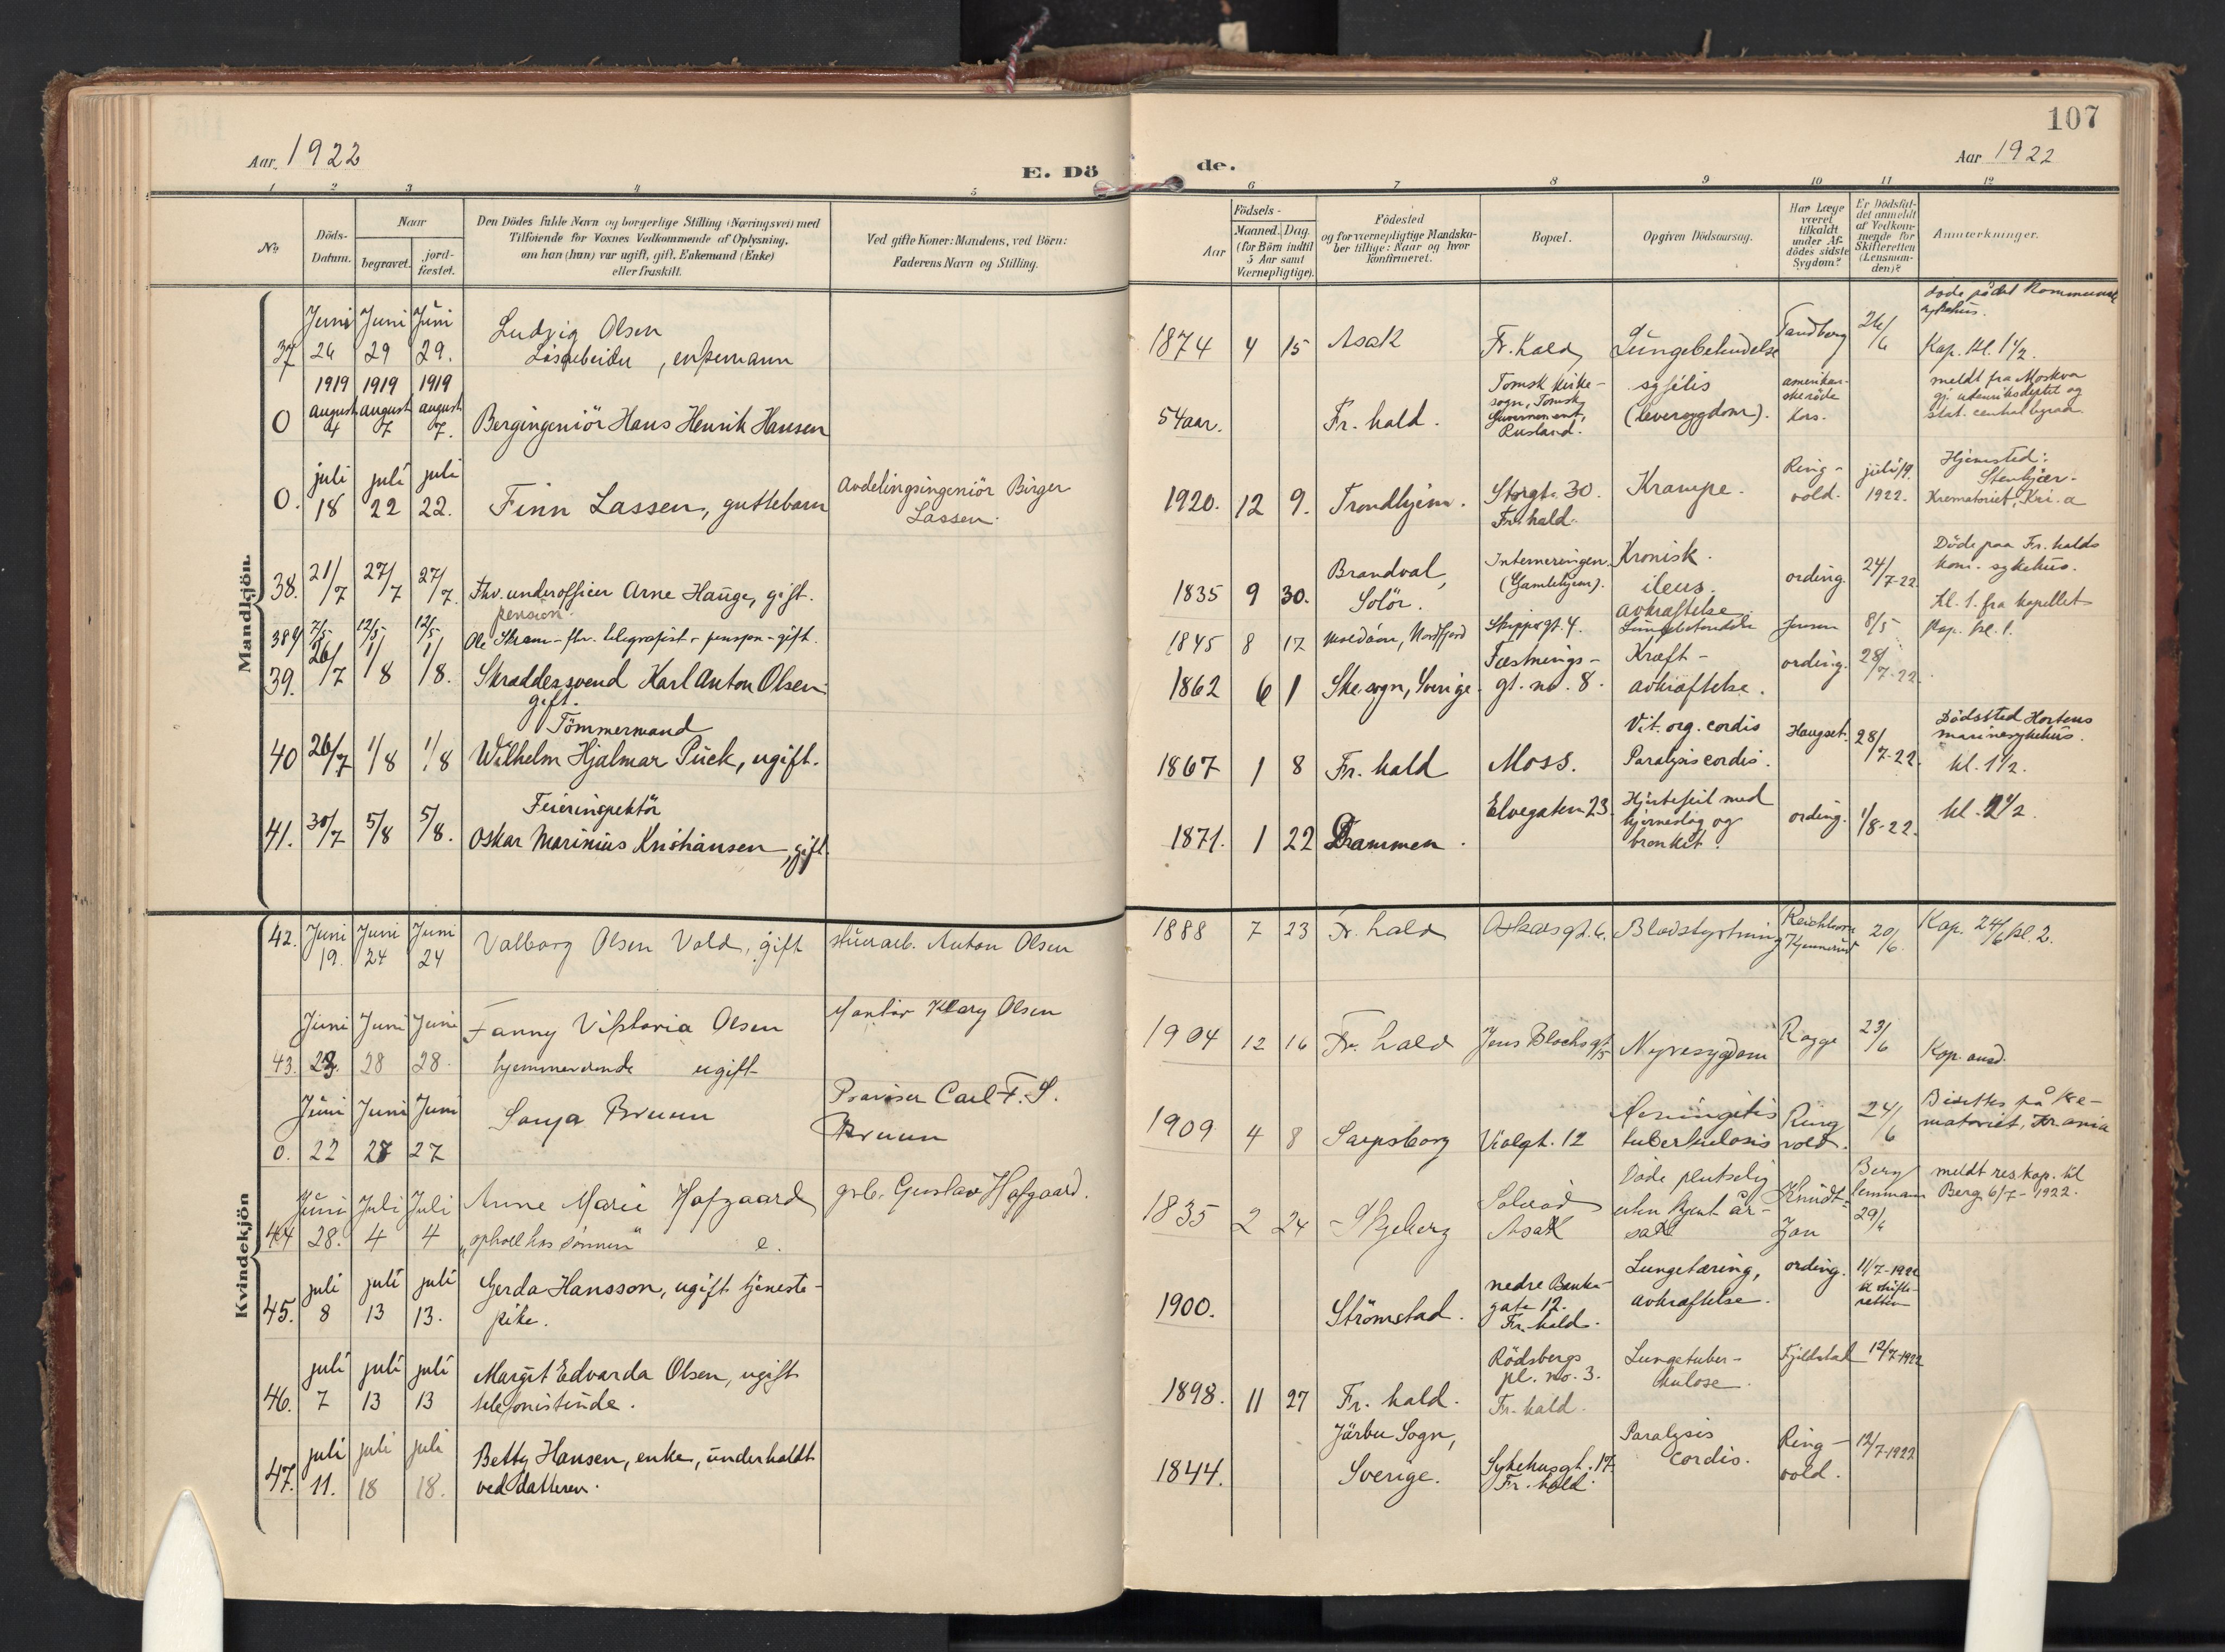 107
Aar 1922
E. Dö
de.
Aar 1922
1 2 3 4 5 6 7 8 9 10 11 12
No
Döds-
Datum.
Naar
begravet.
jord-
fæstet.
Den Dödes fulde Navn og borgerlige Stilling (Næringsvei) med
Tilföiende for Voxnes Vedkommende af Oplysning,
om han (hun) var ugift, gift, Enkemand (Enke)
eller fraskilt.
Ved gifte Koner: Mandens, ved Börn:
Faderens Navn og Stilling.
Aar
Födsels-
Maaned. Dag.
(for Börn indtil
5 Aar samt
Værnepligtige).
Födested
og for værnepligtige Mandska-
ber tillige: Naar og hvor
konfirmeret.
Bopæl.
Opgiven Dödsaarsag.
Har Læge
været
tilkaldt
under Af-
dödes sidste
Sygdom?
Er Dödsfal-
det anmeldt
af Vedkom-
mende for
Skifteretten
(Lensman-
den)?
Anmærkninger.
Mandkjön
37 Juni 26 Juni 29 Juni 29.
Ludvig Olsen
Løsarbeider, enkemann
1874 4 15 Asak
Fr. hald
Lungebetendelse
Tandberg
26/6
døde på det kommunale
sykehus.
Kap. kl. 1½.
0 1919 august 4 1919 august 7 1919 august 7.
Bergingeniör Hans Henrik Hansen
54 aar.
Fr. hald.
Tomsk kirke-
sogn, Tomsk
Guvernement,
Rusland.
syfilis
(leversygdom).
amerikan-
ske röde
kors.
meldt fra Moskva
gj. utenriksdeptet og
stat. centralbyraa
0. juli 18 juli 22 juli 22.
Finn Lassen, guttebarn
Avdelingsingeniör Birger
Lassen.
1920. 12 9. Trondhjem.
Storgt. 30.
Fr. hald.
Krampe.
Ring-
vold.
juli 19.
1922.
Hjemsted:
Stenkjær.
Krematoriet, Kri.a
38. 21/7 27/7 27/7.
Fhv. underofficer Arne Hauge, gift.
pension.
1835 9 30.
Brandval,
Solör.
Interneringen.
(Gamlehjem).
Kronisk
ileus.
avkræftelse
ording.
24/7-22
Döde paa Fr. halds
kom. sykehus.
Kl. 1. fra kapellet
7/5 12/5 12/5
Ole Skram - fhv. telegrafist - pensjon - gift.
1845 8 17
Skippergt. 4.
Jensen
8/5
Kap. kl. 1.
39. 26/7 1/8 1/8.
Skræddersvend Karl Anton Olsen
gift.
1862 6 1 Ske sogn, Sverige.
Fæstnings-
gt. no. 8.
Kræft-
avkræftelse.
ording.
28/7-22.
40 26/7 1/8 1/8
Tömmermand
Wilhelm Hjalmar Puck, ugift.
1867 1 8 Fr. hald
Moss.
Vit. org. cordis
Paralysis cordis.
Haugset.
28/7-22.
Dödssted Hortens
marinesykehus.
kl. 1½.
41. 30/7 5/8 5/8.
Feierinspektör
Oskar Marinius Kristiansen, gift.
1871. 1 22 Drammen.
Elvegaten 23.
Hjertefeil med
hjerneslag og
bronkit.
ording.
1/8-22.
kl. 2½
Kvindekjön
42. Juni 19. Juni 24 Juni 24
Valborg Olsen Vold, gift
stenarb. Anton Olsen
1888 7 23 Fr. hald
Oskarsgt. 6.
Blodstyrtning
20/6.
Kap. 24/6 kl. 2.
43. Juni 23. Juni 28 Juni 28.
Fanny Viktoria Olsen
hjemmeværende ugift
Olsen
1904 12 16 Fr. hald
Jens Blochsgt. 5
Nyresygdom
Rogge
23/6
Kap. and.
0. Juni 22 Juni 27 Juni 27
Sonja Bruun
Provisor Carl F. S.
Bruun
1909 4 8 Sarpsborg
Violgt. 12
Meningitis
tuberkulosis
Ring
vold.
24/6
Bisettes på kre-
matoriet, Kr.ania
44 Juni 28. Juli 4 Juli 4
Anne Marie Hofgaard
"ophold hos sønnen" e.
grb. Gustav Hofgaard.
1835 2 24 Skjeberg
Asak
Døde plutselig
uten kjent år-
sak
Knudt-
zon
Berg
lensmann
29/6
meldt res. kap. til
Berg 6/7 - 1922.
45. juli 8 juli 13 juli 13.
Gerda Hansson, ugift tjeneste-
pike.
1900. Strömstad.
nedre Banke-
gate 12.
Fr. hald.
Lungetæring,
avkræftelse.
ording.
11/7-1922
til skifte-
retten
46. juli 7 juli 13 juli 13
Margit Edvarda Olsen, ugift
telefonistinde.
1898. 11 27 Fr. hald.
Rödsbergs
pl. no. 3.
Fr. hald.
Lungetuber-
kulose.
Fjeldstad
12/7-1922
47. juli 11. juli 18 juli 18.
Betty Hansen, enke, underholdt
ved datteren.
1844.
Järbu Sogn,
Sverige.
Sykehusgt. 17.
Fr. hald.
Paralysis
cordis.
Ring-
vold.
12/7-1922